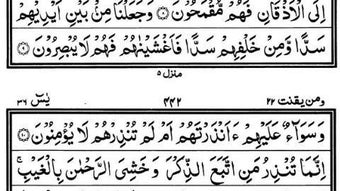 اِلَى الْاَذْقَانِ فَهُمْ مُّقْمَحُوْنَ ۝ وَجَعَلْنَا مِنْۢ بَيْنِ اَيْدِيْهِمْ
سَدًّا وَّمِنْ خَلْفِهِمْ سَدًّا فَاَغْشَيْنٰهُمْ فَهُمْ لَا يُبْصِرُوْنَ ۝
منزل ۵
ومن يقنت ۲۲ ۴۴۲ يٰسٓ ۳۶
وَسَوَآءٌ عَلَيْهِمْ ءَاَنْذَرْتَهُمْ اَمْ لَمْ تُنْذِرْهُمْ لَا يُؤْمِنُوْنَ ۝
اِنَّمَا تُنْذِرُ مَنِ اتَّبَعَ الذِّكْرَ وَخَشِيَ الرَّحْمٰنَ بِالْغَيْبِ ۚ